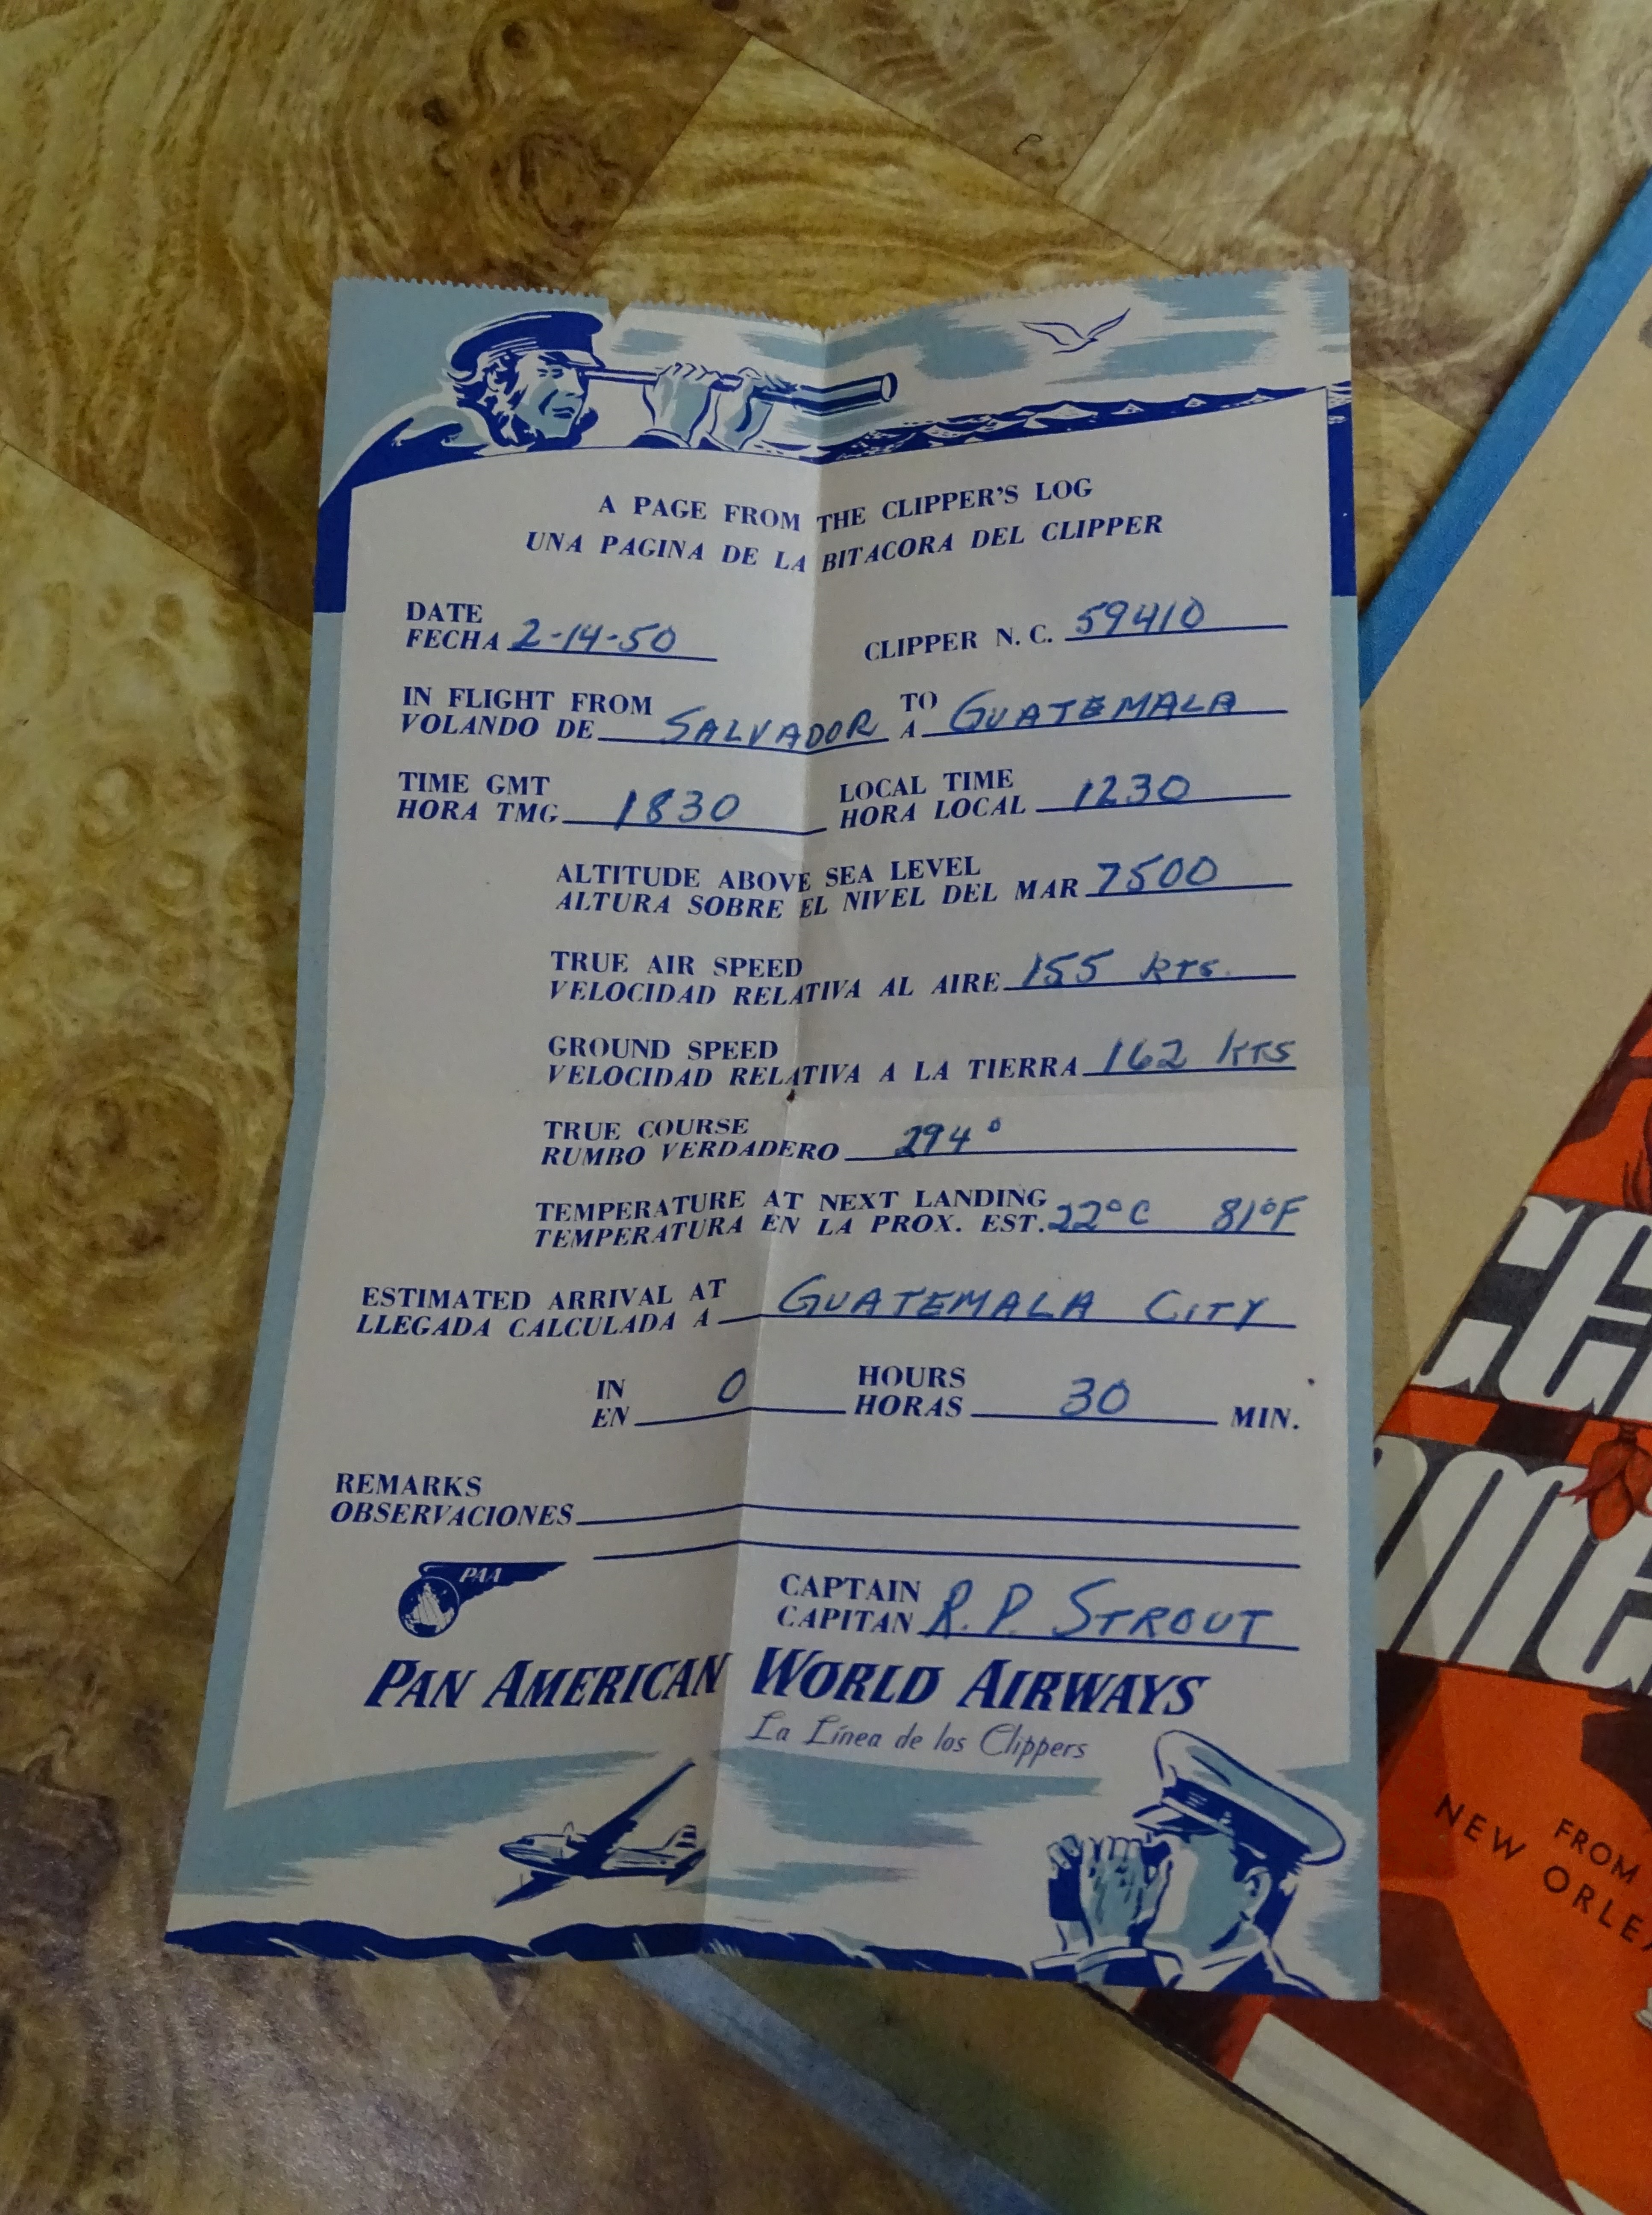 A PAGE FROM THE CLIPPER'S LOG
UNA PAGINA DE LA BITACORA DEL CLIPPER
DATE
FECHA 2-14-50
CLIPPER N. C. 59410
IN FLIGHT FROM
VOLANDO DE SALVADOR
TO
A GUATEMALA
TIME GMT
HORA TMG 1830
LOCAL TIME
HORA LOCAL 1230
ALTITUDE ABOVE SEA LEVEL
ALTURA SOBRE EL NIVEL DEL MAR 7500
TRUE AIR SPEED
VELOCIDAD RELATIVA AL AIRE 155 KTS.
GROUND SPEED
VELOCIDAD RELATIVA A LA TIERRA 162 KTS
TRUE COURSE
RUMBO VERDADERO 294°
TEMPERATURE AT NEXT LANDING
TEMPERATURA EN LA PROX. EST. 22°C 81°F
ESTIMATED ARRIVAL AT
LLEGADA CALCULADA A GUATEMALA CITY
IN
EN 0
HOURS
HORAS 30 MIN.
REMARKS
OBSERVACIONES
PAA
CAPTAIN
CAPITAN R. P. STROUT
PAN AMERICAN WORLD AIRWAYS
La Línea de los Clippers
FROM
NEW